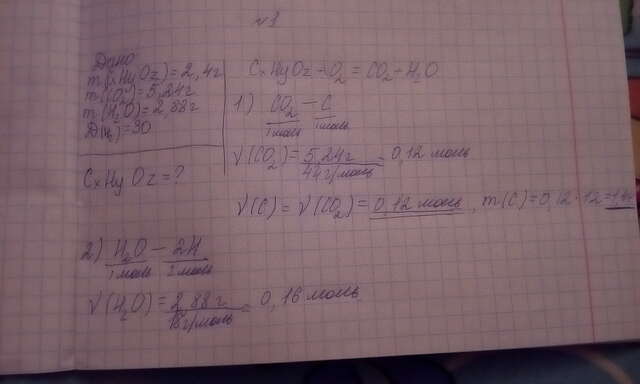 №1
Дано
m(CxHyOz)=2,4г
m(CO₂)=5,24г
m(H₂O)=2,88г
Д(H₂)=30
CxHyOz=?
CxHyOz+O₂=CO₂+H₂O
1) CO₂ – C
1моль 1моль
ν(CO₂)=5,24г/44г/моль=0,12 моль
ν(C)=ν(CO₂)=0,12 моль, m(C)=0,12·12=1,4
2) H₂O – 2H
1моль 2моль
ν(H₂O)=2,88г/18г/моль=0,16 моль